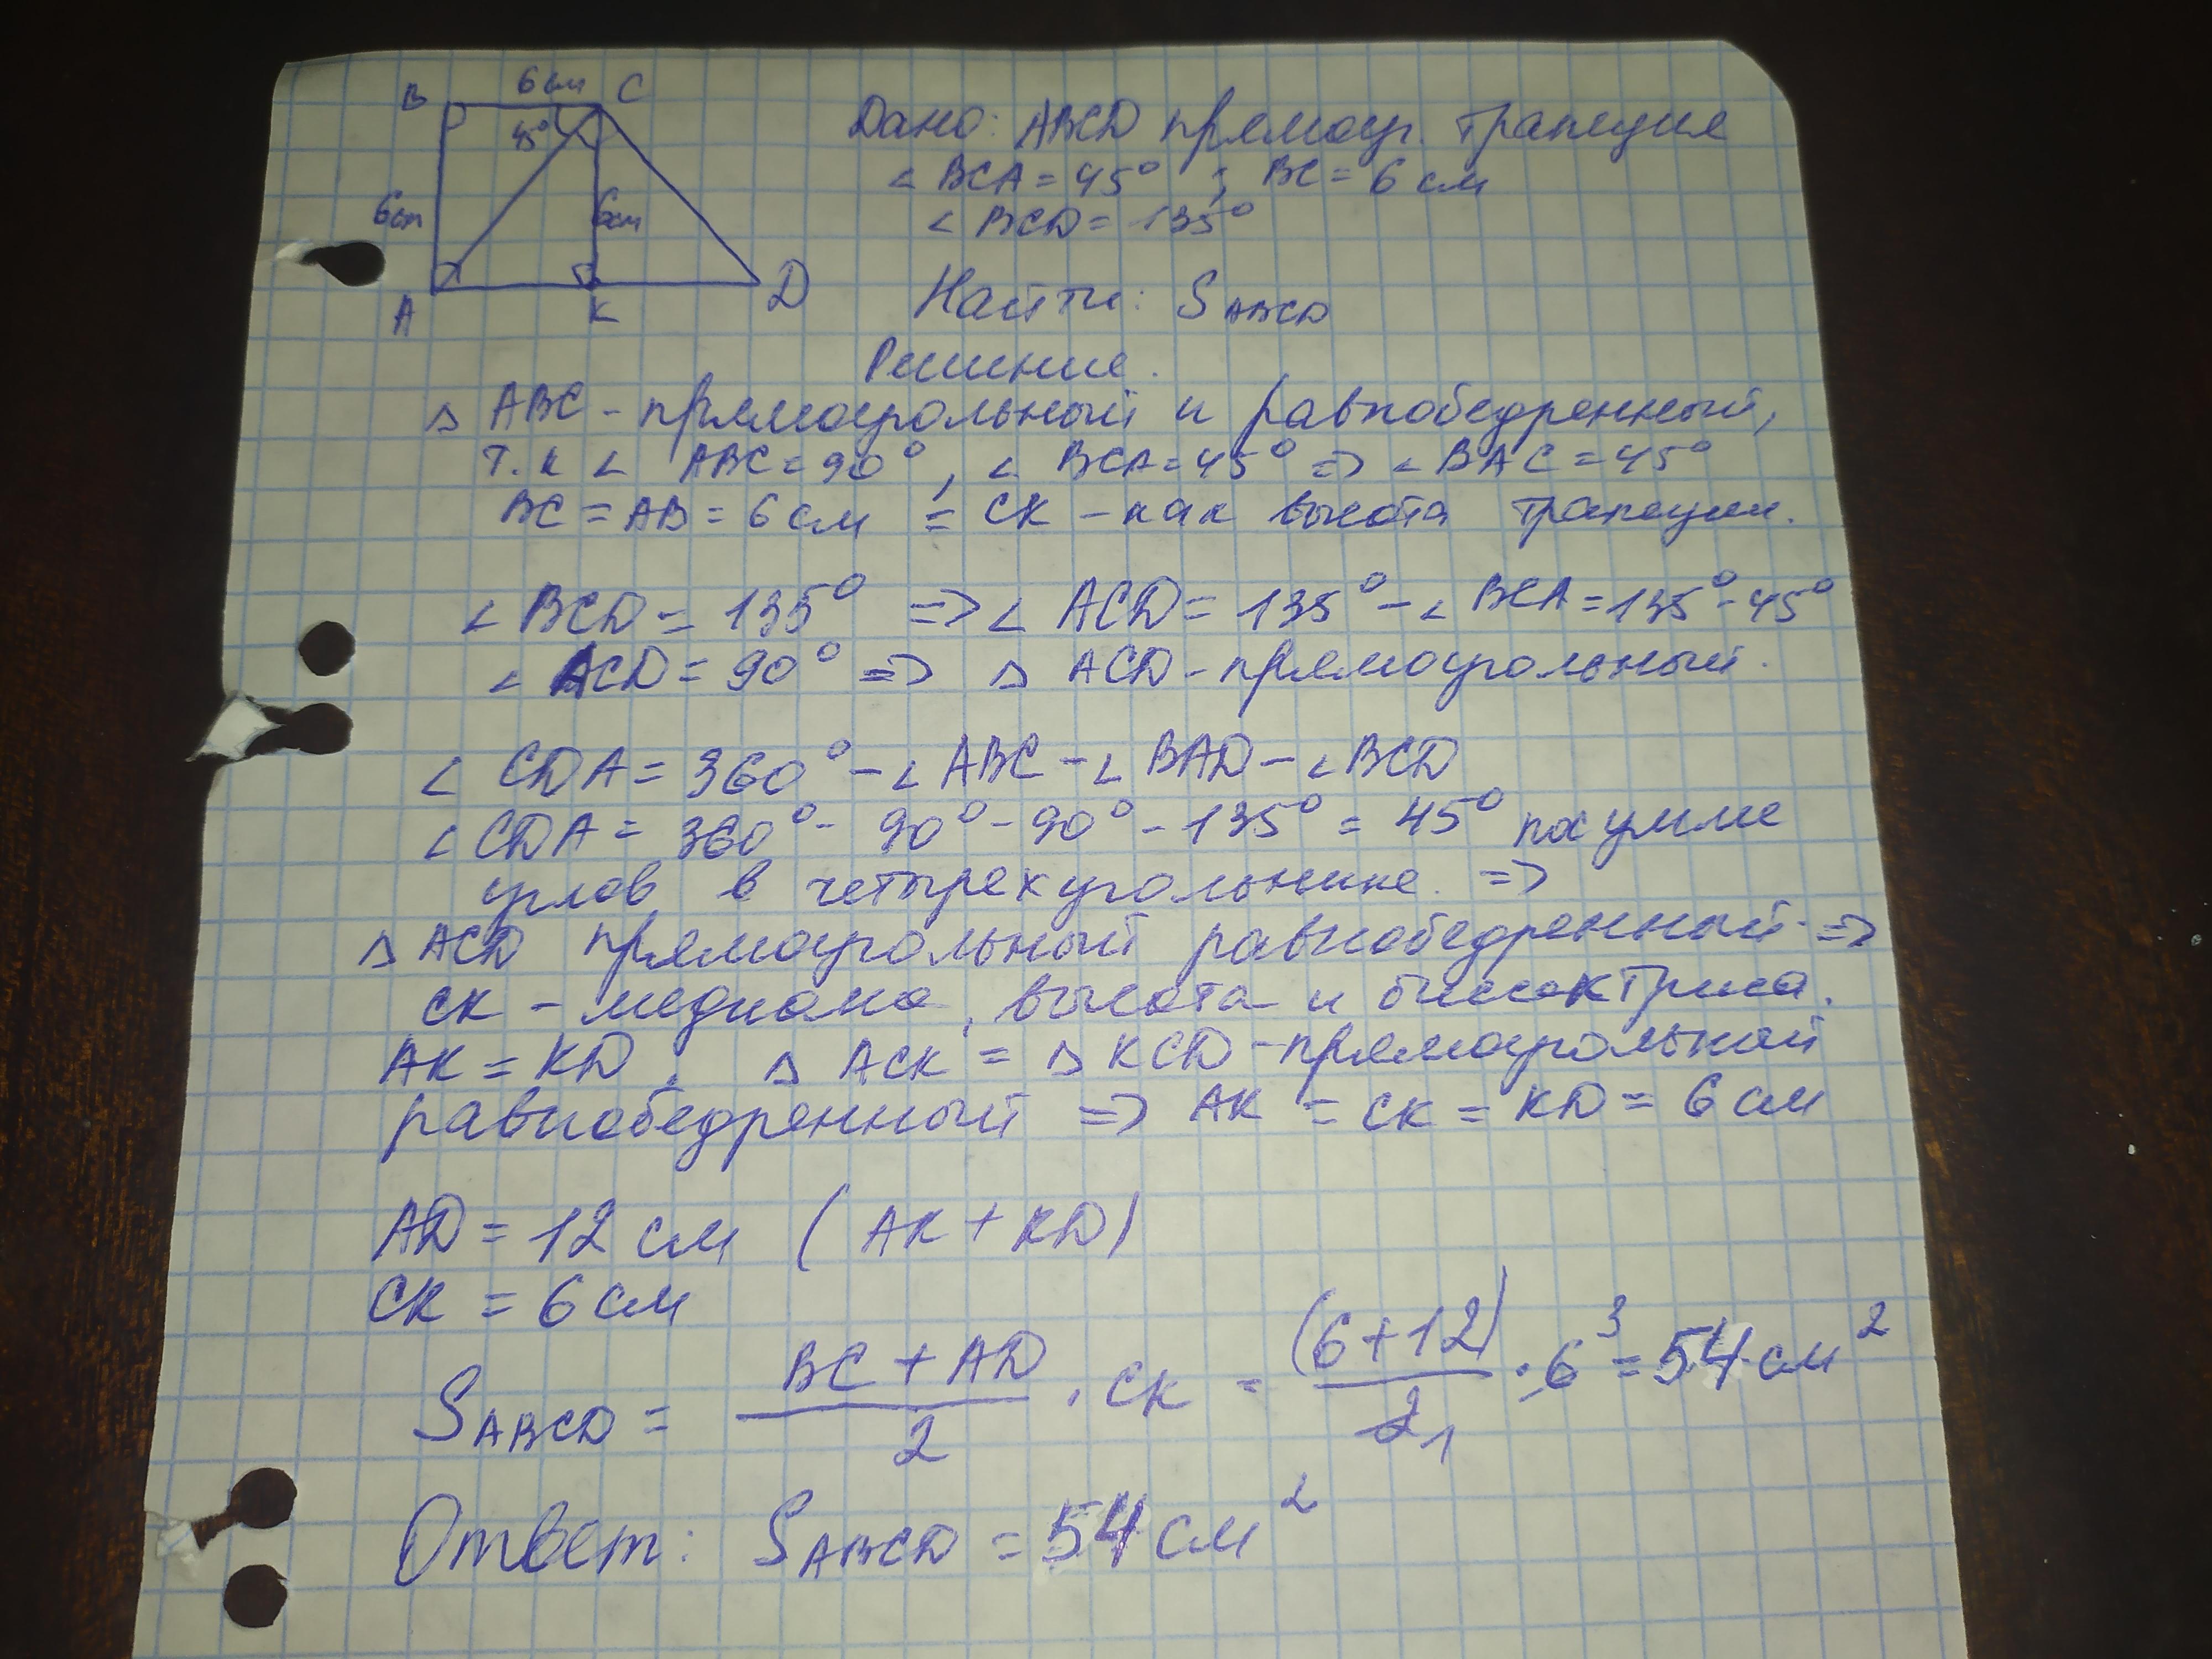 6 см
B
C
45°
6 см
6 см
A
K
D
Дано: ABCD прямоуг. трапеция
∠ BCA = 45° ; BC = 6 см
∠ BCD = 135°
Найти: S ABCD
Решение.
△ ABC - прямоугольный и равнобедренный,
т.к ∠ ABC = 90°, ∠ BCA = 45° => ∠ BAC = 45°
BC = AB = 6 см = CK - как высота трапеции.
∠ BCD = 135° => ∠ ACD = 135° - ∠ BCA = 135° - 45°
∠ ACD = 90° => △ ACD - прямоугольный.
∠ CDA = 360° - ∠ ABC - ∠ BAD - ∠ BCD
∠ CDA = 360° - 90° - 90° - 135° = 45° по сумме
углов в четырехугольнике. =>
△ ACD прямоугольный равнобедренный =>
CK - медиана, высота и биссектриса.
AK = KD. △ ACK = △ KCD - прямоугольный
равнобедренный => AK = CK = KD = 6 см
AD = 12 см (AK + KD)
CK = 6 см
S ABCD = BC + AD / 2 · CK = (6 + 12) / 2 1 · 6 3 = 54 см²
Ответ: S ABCD = 54 см²